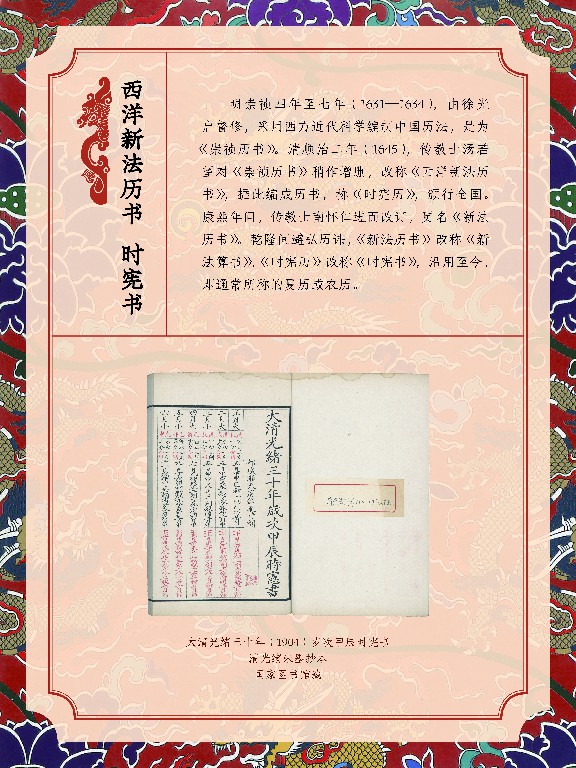 西洋新法历书 时宪书
明崇祯四年至七年（1631—1634），由徐光
启督修，采用西方近代科学编成中国历法，是为
《崇祯历书》。清顺治二年（1645），传教士汤若
望对《崇祯历书》稍作增删，改称《西洋新法历
书》，据此编成历书，称《时宪历》，颁行全国。
康熙年间，传教士南怀仁进而改订，更名《新法
历书》。乾隆间避弘历讳，《新法历书》改称《新
法算书》，《时宪历》改称《时宪书》，沿用至今，
即通常所称的夏历或农历。
大清光緒三十年歲次甲辰時憲書
大清光绪三十年（1904）岁次甲辰时宪书
清光绪朱墨抄本
国家图书馆藏